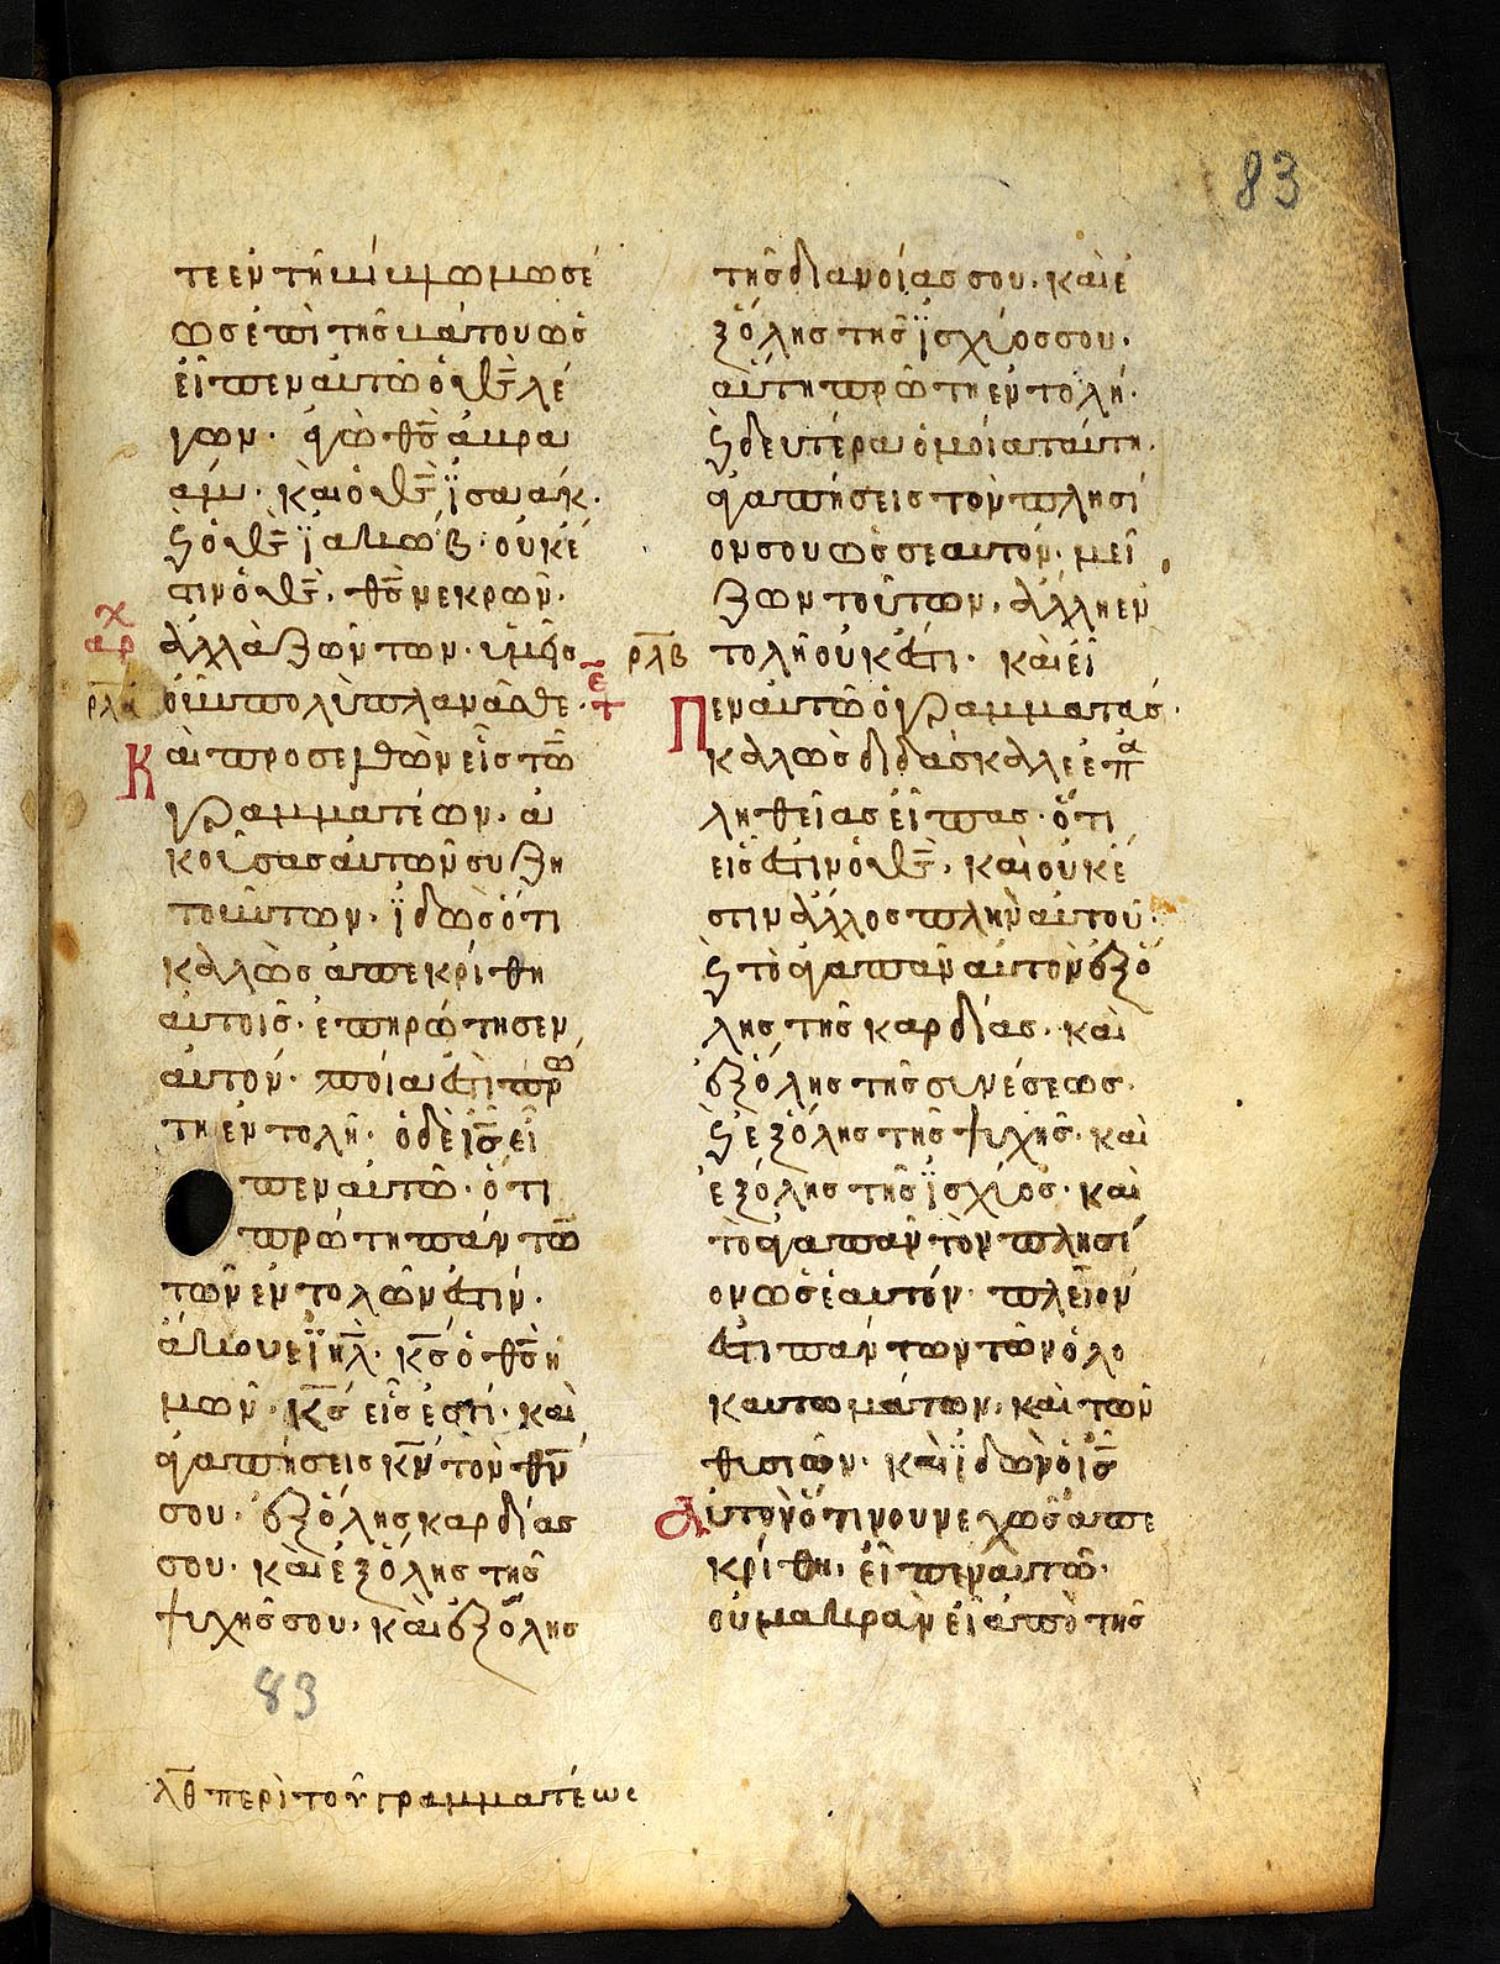 83
τε ἐν τῆ βίβλω μωσέ
ως ἐπὶ τῆς βάτου ὡς
εἶπεν αὐτῶ ὁ θς̅ λέ
γων· ἐγὼ θς̅ ἀβρα
άμ· καὶ ὁ θς̅ ϊσαάκ·
ϗ ὁ θς̅ ϊακώβ· οὐκ ἔ
στιν ὁ θς̅, θς̅ νεκρῶν·
χ
αρ
ἀλλὰ ζώντων· ὑμεῖς
τε̅
ρλα
οὖν πολὺ πλανᾶσθε·
Καὶ προσελθὼν εἷς τῶ̅
γραμματέων· ἀ
κούσας αὐτῶν συζη
τούντων· ϊδὼς ὅτι
καλῶς ἀπεκρίθη
αὐτοῖς· ἐπηρώτησεν
αὐτόν· ποία ἐστὶ πρω
τη ἐντολή· ὁ δὲ ις̅ εἶ
πεν αὐτῶ· ὅτι
πρώτη πάντω̅
τῶν ἐντολῶν ἐστίν·
ἄκουε ϊηλ̅· κς̅ ὁ θς̅ ἡ
μῶν· κς̅ εἷς ἐστί· καὶ
ἀγαπήσεις κν̅ τὸν θν̅
σου· ἐξ ὅλης καρδίας
σου· καὶ ἐξ ὅλης τῆς
ψυχῆς σου, καὶ ἐξ ὅλης
τῆς διανοίας σου· καὶ ἐ
ξ ὅλης τῆς ϊσχύος σου·
αὕτη πρώτη ἐντολή·
ϗ δευτέρα ὁμοία ταύτη·
ἀγαπήσεις τὸν πλησί
ον σου ὡς σεαυτόν· μεί
ζων τούτων, ἄλλη ἐν
ρλβ
τολὴ οὐκ ἔστι· καὶ εἶ
Πεν αὐτῶ ὁ γραμματεύς·
καλῶς διδάσκαλε ἐπ ἀ
ληθείας εἶπας· ὅτι
εἷς ἐστιν ὁ θς̅, καὶ οὐκ ἔ
στιν ἄλλος πλὴν αὐτοῦ·
ϗ τὸ ἀγαπᾶν αὐτὸν ἐξ ὅ
λης τῆς καρδίας· καὶ
ἐξ ὅλης τῆς συνέσεως·
ϗ ἐξ ὅλης τῆς ψυχῆς· καὶ
ἐξ ὅλης τῆς ϊσχύος· καὶ
τὸ ἀγαπᾶν τὸν πλησί
ον ὡς ἑαυτόν· πλεῖον
ἐστι πάντων τῶν ὁλο
καυτωμάτων, καὶ τῶν
θυσιῶν· καὶ ϊδὼν ὁ ις̅
Αὐτὸν ὅτι νουνεχῶς ἀπε
κρίθη, εἶπεν αὐτῶ·
οὐ μακρὰν εἶ ἀπὸ τῆς
83
λθ̅ περὶ τοῦ γραμματέως